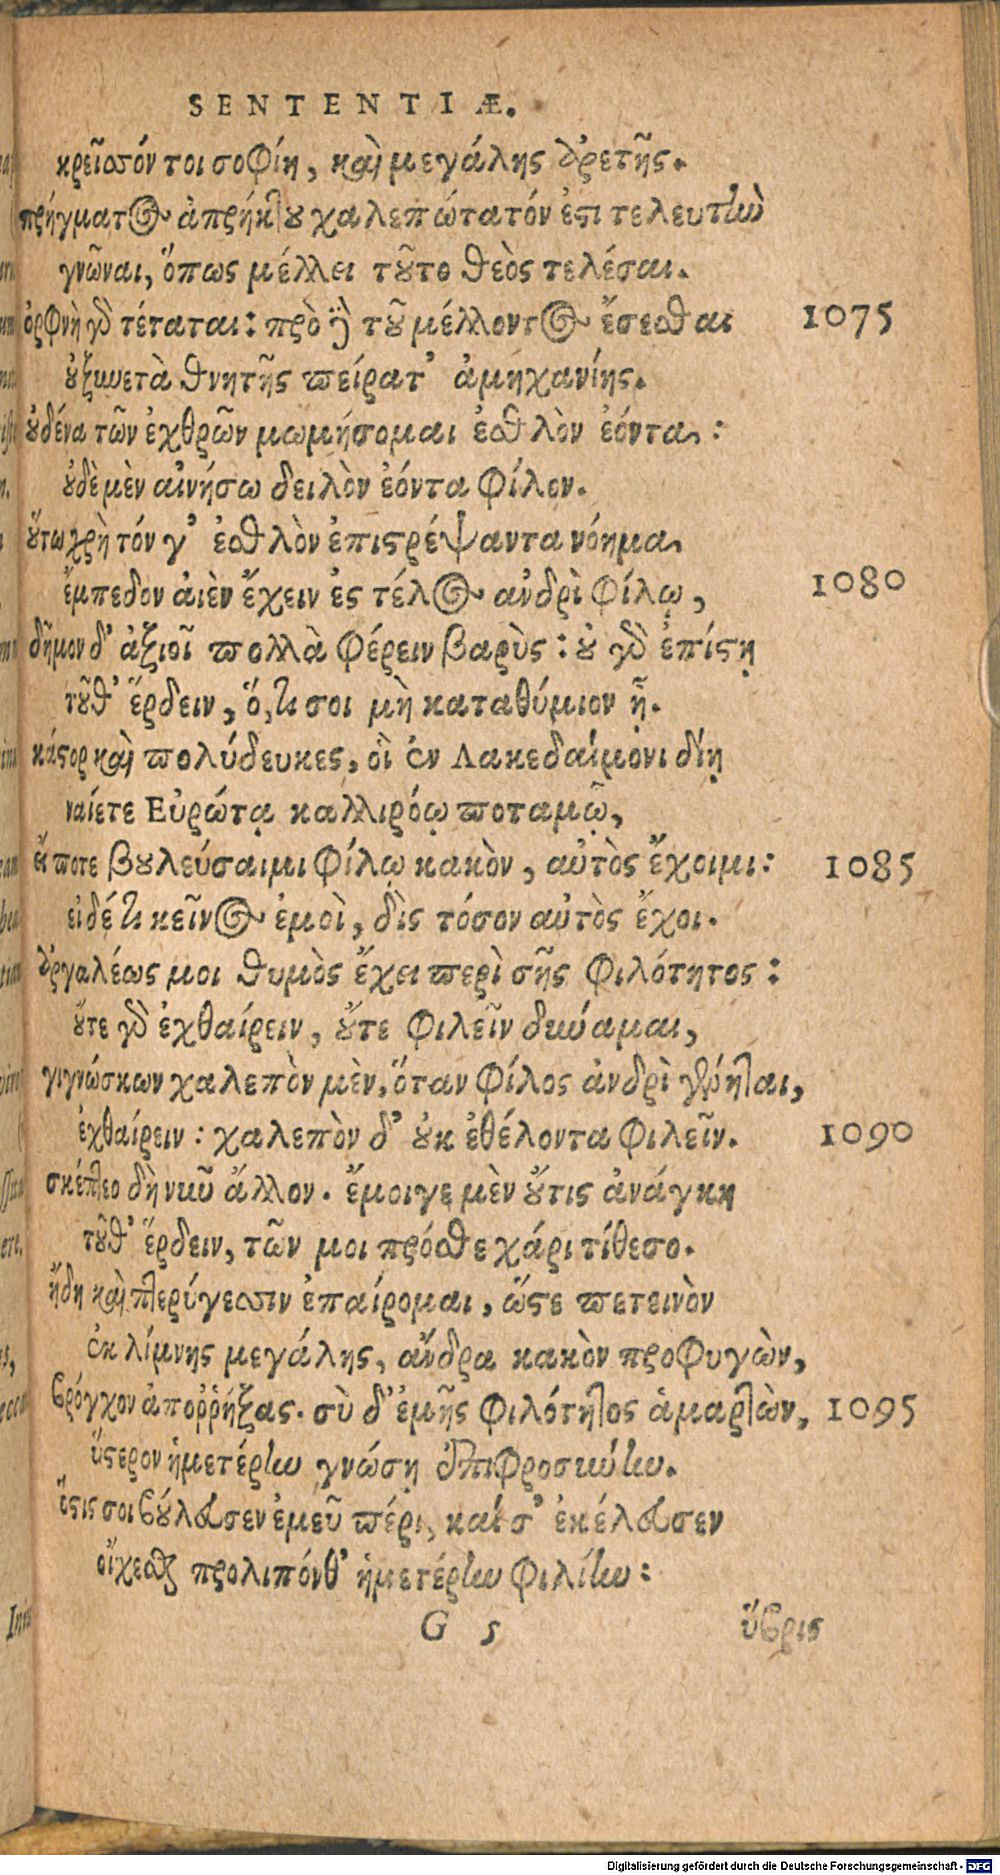 SENTENTIÆ.
κρεῖσσόν τοι σοφίη, καὶ μεγάλης ἀρετῆς.
πρήγματος ἀπρήκτου χαλεπώτατόν ἐστι τελευτὴν
γνῶναι, ὅπως μέλλει τοῦτο θεὸς τελέσαι.
ὀρφνὴ γὰρ τέταται: πρὸ δὲ τοῦ μέλλοντος ἔσεσθαι 1075
οὐ ξυνετὰ θνητῆς πείρατ' ἀμηχανίης.
οὐδένα τῶν ἐχθρῶν μωμήσομαι ἐσθλὸν ἐόντα:
οὐδὲ μὲν αἰνήσω δειλὸν ἐόντα φίλον.
οὕτω χρὴ τόν γ' ἐσθλὸν ἐπιστρέψαντα νόημα
ἔμπεδον αἰὲν ἔχειν ἐς τέλος ἀνδρὶ φίλῳ, 1080
δῆμον δ' ἀξιοῖ πολλὰ φέρειν βαρὺς: οὐ γὰρ ἐπίστῃ
τοῦθ' ἔρδειν, ὅ,τι σοι μὴ καταθύμιον ᾖ.
κάστορ καὶ πολύδευκες, οἳ ἐν Λακεδαίμονι δίῃ
ναίετε Εὐρώτᾳ καλλιρόῳ ποταμῷ,
εἴ ποτε βουλεύσαιμι φίλῳ κακὸν, αὐτὸς ἔχοιμι: 1085
εἰ δέ τι κεῖνος ἐμοὶ, δὶς τόσον αὐτὸς ἔχοι.
ἀργαλέως μοι θυμὸς ἔχει περὶ σῆς φιλότητος:
οὔτε γὰρ ἐχθαίρειν, οὔτε φιλεῖν δύναμαι,
γιγνώσκων χαλεπὸν μὲν, ὅταν φίλος ἀνδρὶ γένηται,
ἐχθαίρειν: χαλεπὸν δ' οὐκ ἐθέλοντα φιλεῖν. 1090
σκέπτεο δὴ νῦν ἄλλον. ἔμοιγε μὲν οὔτις ἀνάγκη
τοῦθ' ἔρδειν, τῶν μοι πρόσθε χάρι τίθεσο.
ἤδη καὶ πτερύγεσσιν ἐπαίρομαι, ὥστε πετεινὸν
ἐκ λίμνης μεγάλης, ἄνδρα κακὸν προφυγὼν,
βρόγχον ἀποῤῥήξας. σὺ δ' ἐμῆς φιλότητος ἁμαρτὼν, 1095
ὕστερον ἡμετέρην γνώσῃ ἐπιφροσύνην.
ὅστις σοι βούλευσεν ἐμεῦ πέρι, καί σ' ἐκέλευσεν
οἴχεσθαι προλιπόνθ' ἡμετέρην φιλίην:
G 5 ὕβρις
Digitalisierung gefördert durch die Deutsche Forschungsgemeinschaft - DFG